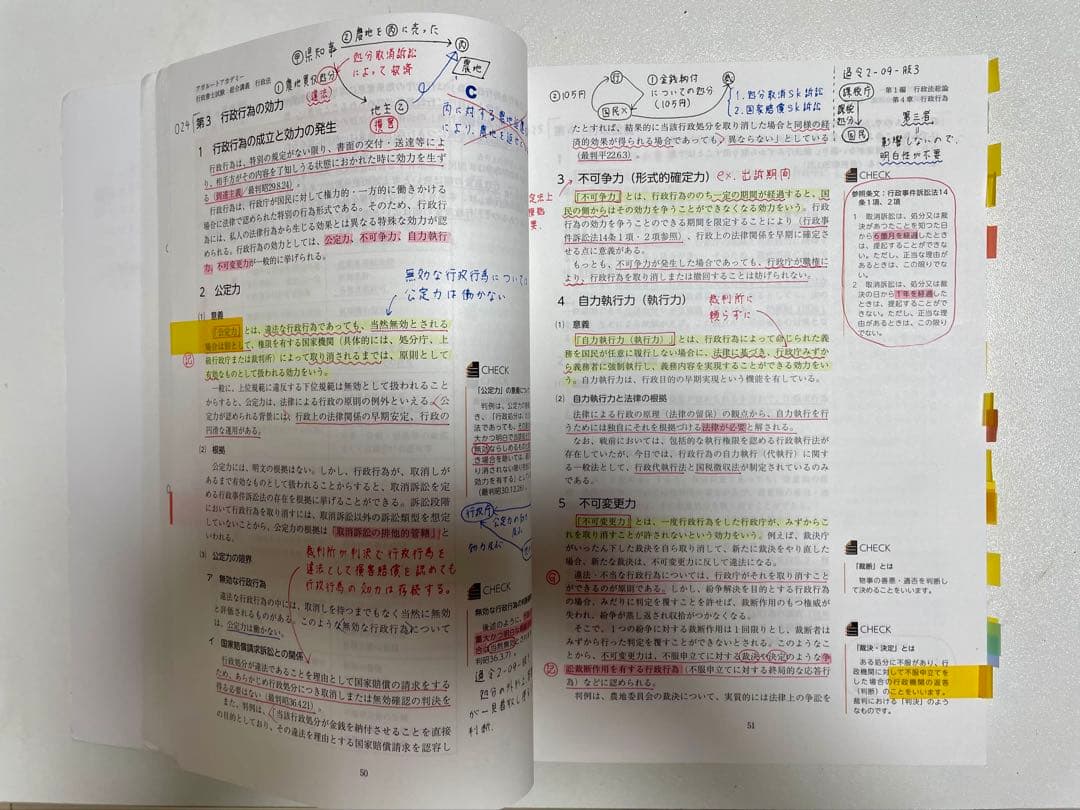 アガルートアカデミー
行政書士試験 総合講義 行政法
甲県知事
②農地を丙に売った
丙
農地
①農地買収処分
違法
処分取消訴訟
によって取消
地主乙
損害
C
024
第3 行政行為の効力
1 行政行為の成立と効力の発生
行政行為は、特別の規定がない限り、書面の交付・送達等によ
り、相手方がその内容を了知しうる状態におかれた時に効力を生ず
る(到達主義/最判昭29.8.24)。
行政行為は、行政庁が国民に対して権力的・一方的に働きかける
行為に法律で認められた特別の行為形式である。そのため、行政行
為には、私人の法律行為から生じる効果とは異なる特殊な効力が認
められる。行政行為の効力としては、公定力、不可争力、自力執行
力、不可変更力が一般的に挙げられる。
無効な行政行為については
公定力は働かない
2 公定力
(1) 意義
「公定力」とは、違法な行政行為であっても、当然無効とされる
場合は別として、権限を有する国家機関(具体的には、処分庁、上
級行政庁または裁判所)によって取り消されるまでは、原則として
有効なものとして扱われる効力をいう。
記
一般に、上位規範に違反する下位規範は無効として扱われること
からすると、公定力は、法律による行政の原則の例外といえる。公
定力が認められる背景には、行政上の法律関係の早期安定、行政の
円滑な運用がある。
(2) 根拠
公定力には、明文の根拠はない。しかし、行政行為が、取消しが
あるまで有効なものとして扱われることからすると、取消訴訟を定
める行政事件訴訟法の存在を根拠に挙げることができる。訴訟段階
において行政行為を取り消すには、取消訴訟以外の訴訟類型を想定
していないことから、公定力の根拠は「取消訴訟の排他的管轄」と
いわれる。
(3) 公定力の限界
裁判所が判決で行政行為を
違法として損害賠償を認めても
行政行為の効力は存続する。
ア 無効な行政行為
違法な行政行為の中には、取消しを待つまでもなく当然に無効
と評価されるものがある。このような無効な行政行為について
は、公定力は働かない。
イ 国家賠償請求訴訟との関係
行政処分が違法であることを理由として国家賠償の請求をする
ためには、あらかじめ行政処分につき取消しまたは無効確認の判決を
得る必要はない(最判昭36.4.21)。
また、判例は、「当該行政処分が金銭を納付させることを直接
の目的としており、その違法を理由とする国家賠償請求を認容し
CHECK
行政庁
CHECK
50
②105万
行
国民×
①金銭納付
についての処分
(105万)
裁
1.処分取消sk訴訟
2.国家賠償sk訴訟
過令2-09-肢3
課税庁
課税
処分
国民
第三者
影響しないので、
明白性が不要
第1編 行政法総論
第4章 行政行為
たとすれば、結果的に当該行政処分を取り消した場合と同様の経
済的効果が得られる場合であっても、異ならない」としている
(最判平22.6.3)。
3 不可争力(形式的確定力)
ex. 出訴期間
「不可争力」とは、行政行為ののち一定の期間が経過すると、国
民の側からはその効力を争うことができなくなる効力をいう。行政
行為の効力を争うことのできる期間を限定することにより(行政事
件訴訟法14条1項・2項参照)、行政上の法律関係を早期に確定さ
せる点に意義がある。
もっとも、不可争力が発生した場合であっても、行政庁が職権に
より、行政行為を取り消しまたは撤回することは妨げられない。
4 自力執行力(執行力)
裁判所に
頼らずに
(1) 意義
「自力執行力(執行力)」とは、行政行為によって命じられた義
務を国民が任意に履行しない場合に、法律に基づき、行政庁みずか
ら義務者に強制執行し、義務内容を実現することができる効力をい
う。自力執行力は、行政目的の早期実現という機能を有している。
(2) 自力執行力と法律の根拠
法律による行政の原理(法律の留保)の観点から、自力執行を行
うためには独自にそれを根拠づける法律が必要と解される。
なお、戦前においては、包括的な執行権限を認める行政執行法が
存在していたが、今日では、行政行為の自力執行(代執行)に関す
る一般法として、行政代執行法と国税徴収法が制定されているのみ
である。
5 不可変更力
「不可変更力」とは、一度行政行為をした行政庁が、みずからこ
れを取り消すことが許されないという効力をいう。例えば、裁決庁
がいったん下した裁決を自ら取り消して、新たに裁決をやり直した
場合、新たな裁決は、不可変更力に反して違法になる。
違法・不当な行政行為については、行政庁がそれを取り消すこと
ができるのが原則である。しかし、紛争解決を目的とする行政行為
の場合、みだりに判定を覆すことを許せば、裁断作用のもつ権威が
失われ、紛争が蒸し返され収拾がつかなくなる。
そこで、1つの紛争に対する裁断作用は1回限りとし、裁断者は
みずから行った判定を覆すことができないとされる。このようなこ
とから、不可変更力は、不服申立てに対する裁決や決定のような争
訟裁断作用を有する行政行為(不服申立てに対する終局的な応答行
為)などに認められる。
記
判例は、農地委員会の裁決について、実質的には法律上の争訟を
CHECK
参照条文:行政事件訴訟法14
条1項、2項
1 取消訴訟は、処分又は裁
決があつたことを知つた日
から6箇月を経過したとき
は、提起することができな
い。ただし、正当な理由が
あるときは、この限りでな
い。
2 取消訴訟は、処分又は裁
決の日から1年を経過した
ときは、提起することがで
きない。ただし、正当な理
由があるときは、この限り
でない。
CHECK
「裁断」とは
物事の善悪・適否を判断し
て決めることをいいます。
CHECK
「裁決・決定」とは
ある処分に不服があり、行
政機関に対して不服申立てを
した場合の行政機関の返答
(判断)のことをいいます。
裁判における「判決」のよう
なものです。
51